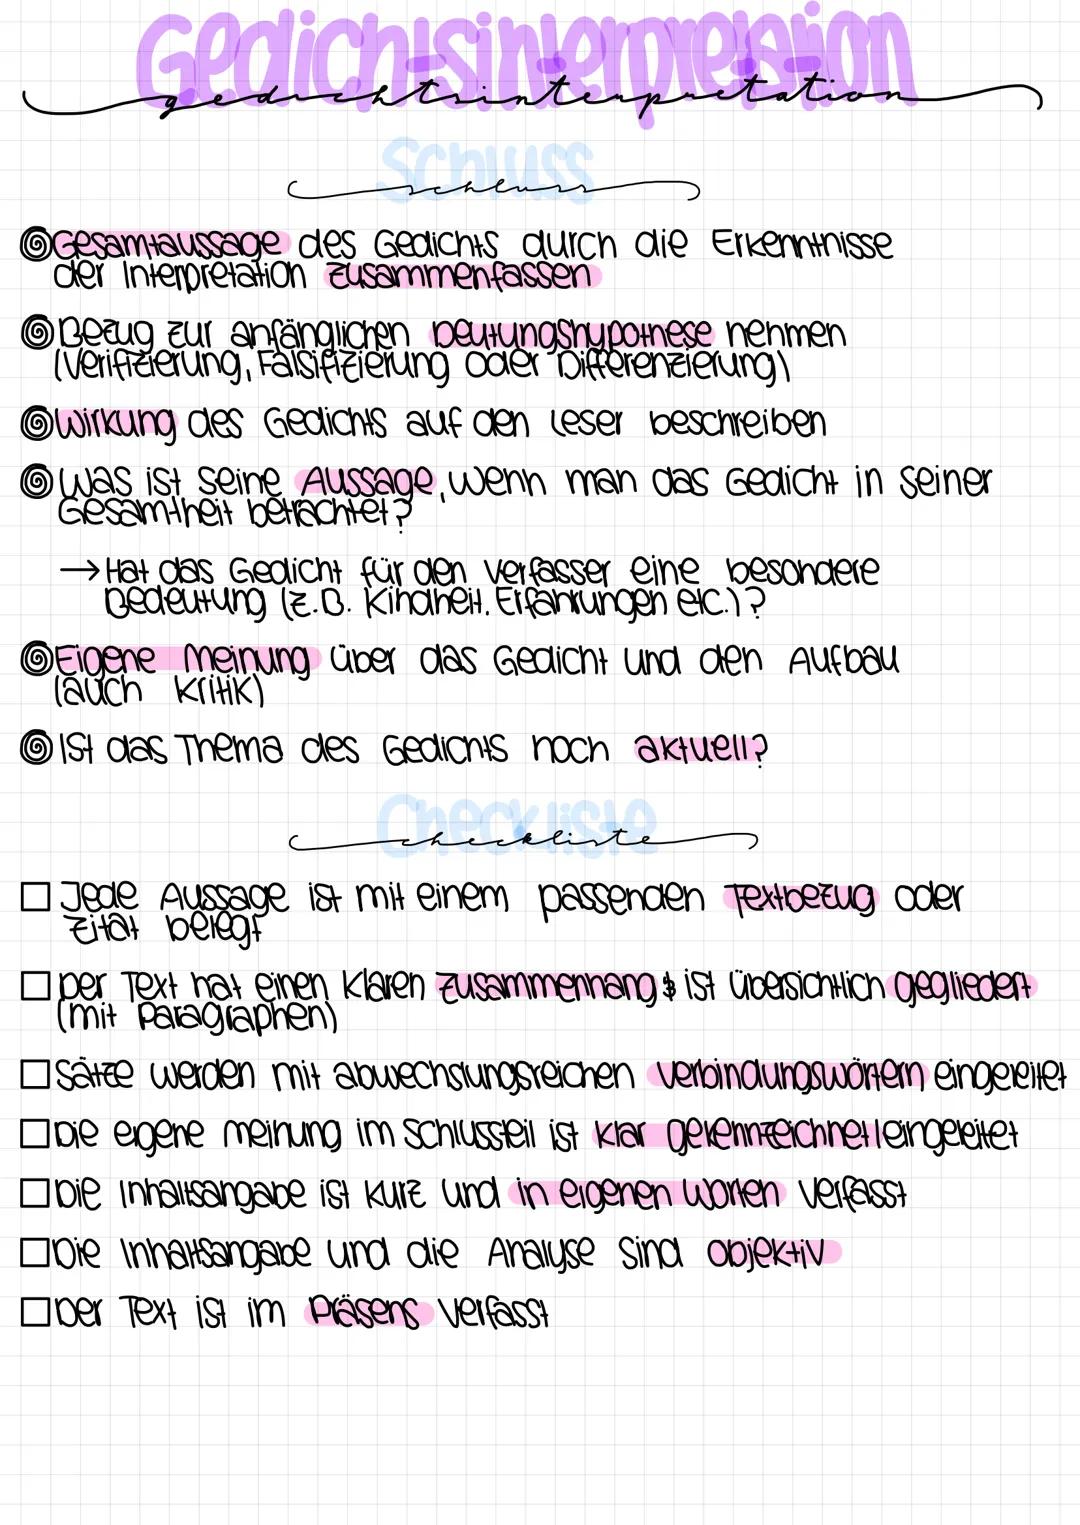 Gedichtsinterpretation
gedichtsinterpretation
Schluss
schluss
Gesamtaussage des Gedichts durch die Erkenntnisse
der Interpretation zusammenfassen
Bezug zur anfänglichen Deutungshypothese nehmen
(Verifizierung, Falsifizierung oder Differenzierung)
Wirkung des Gedichts auf den Leser beschreiben
Was ist seine Aussage, wenn man das Gedicht in seiner
Gesamtheit betrachtet?
→ Hat das Gedicht für den Verfasser eine besondere
Bedeutung (z.B. Kindheit, Erfahrungen etc.)?
Eigene Meinung über das Gedicht und den Aufbau
(auch Kritik)
Ist das Thema des Gedichts noch aktuell?
Checkliste
checkliste
☐ Jede Aussage ist mit einem passenden Textbezug oder
Zitat belegt
☐ Der Text hat einen klaren Zusammenhang & ist übersichtlich gegliedert
(mit Paragraphen)
☐ Sätze werden mit abwechslungsreichen Verbindungswörtern eingeleitet
☐ Die eigene Meinung im Schlussteil ist klar gekennzeichnet/eingeleitet
☐ Die Inhaltsangabe ist kurz und in eigenen Worten verfasst
☐ Die Inhaltsangabe und die Analyse sind objektiv
☐ Der Text ist im Präsens verfasst